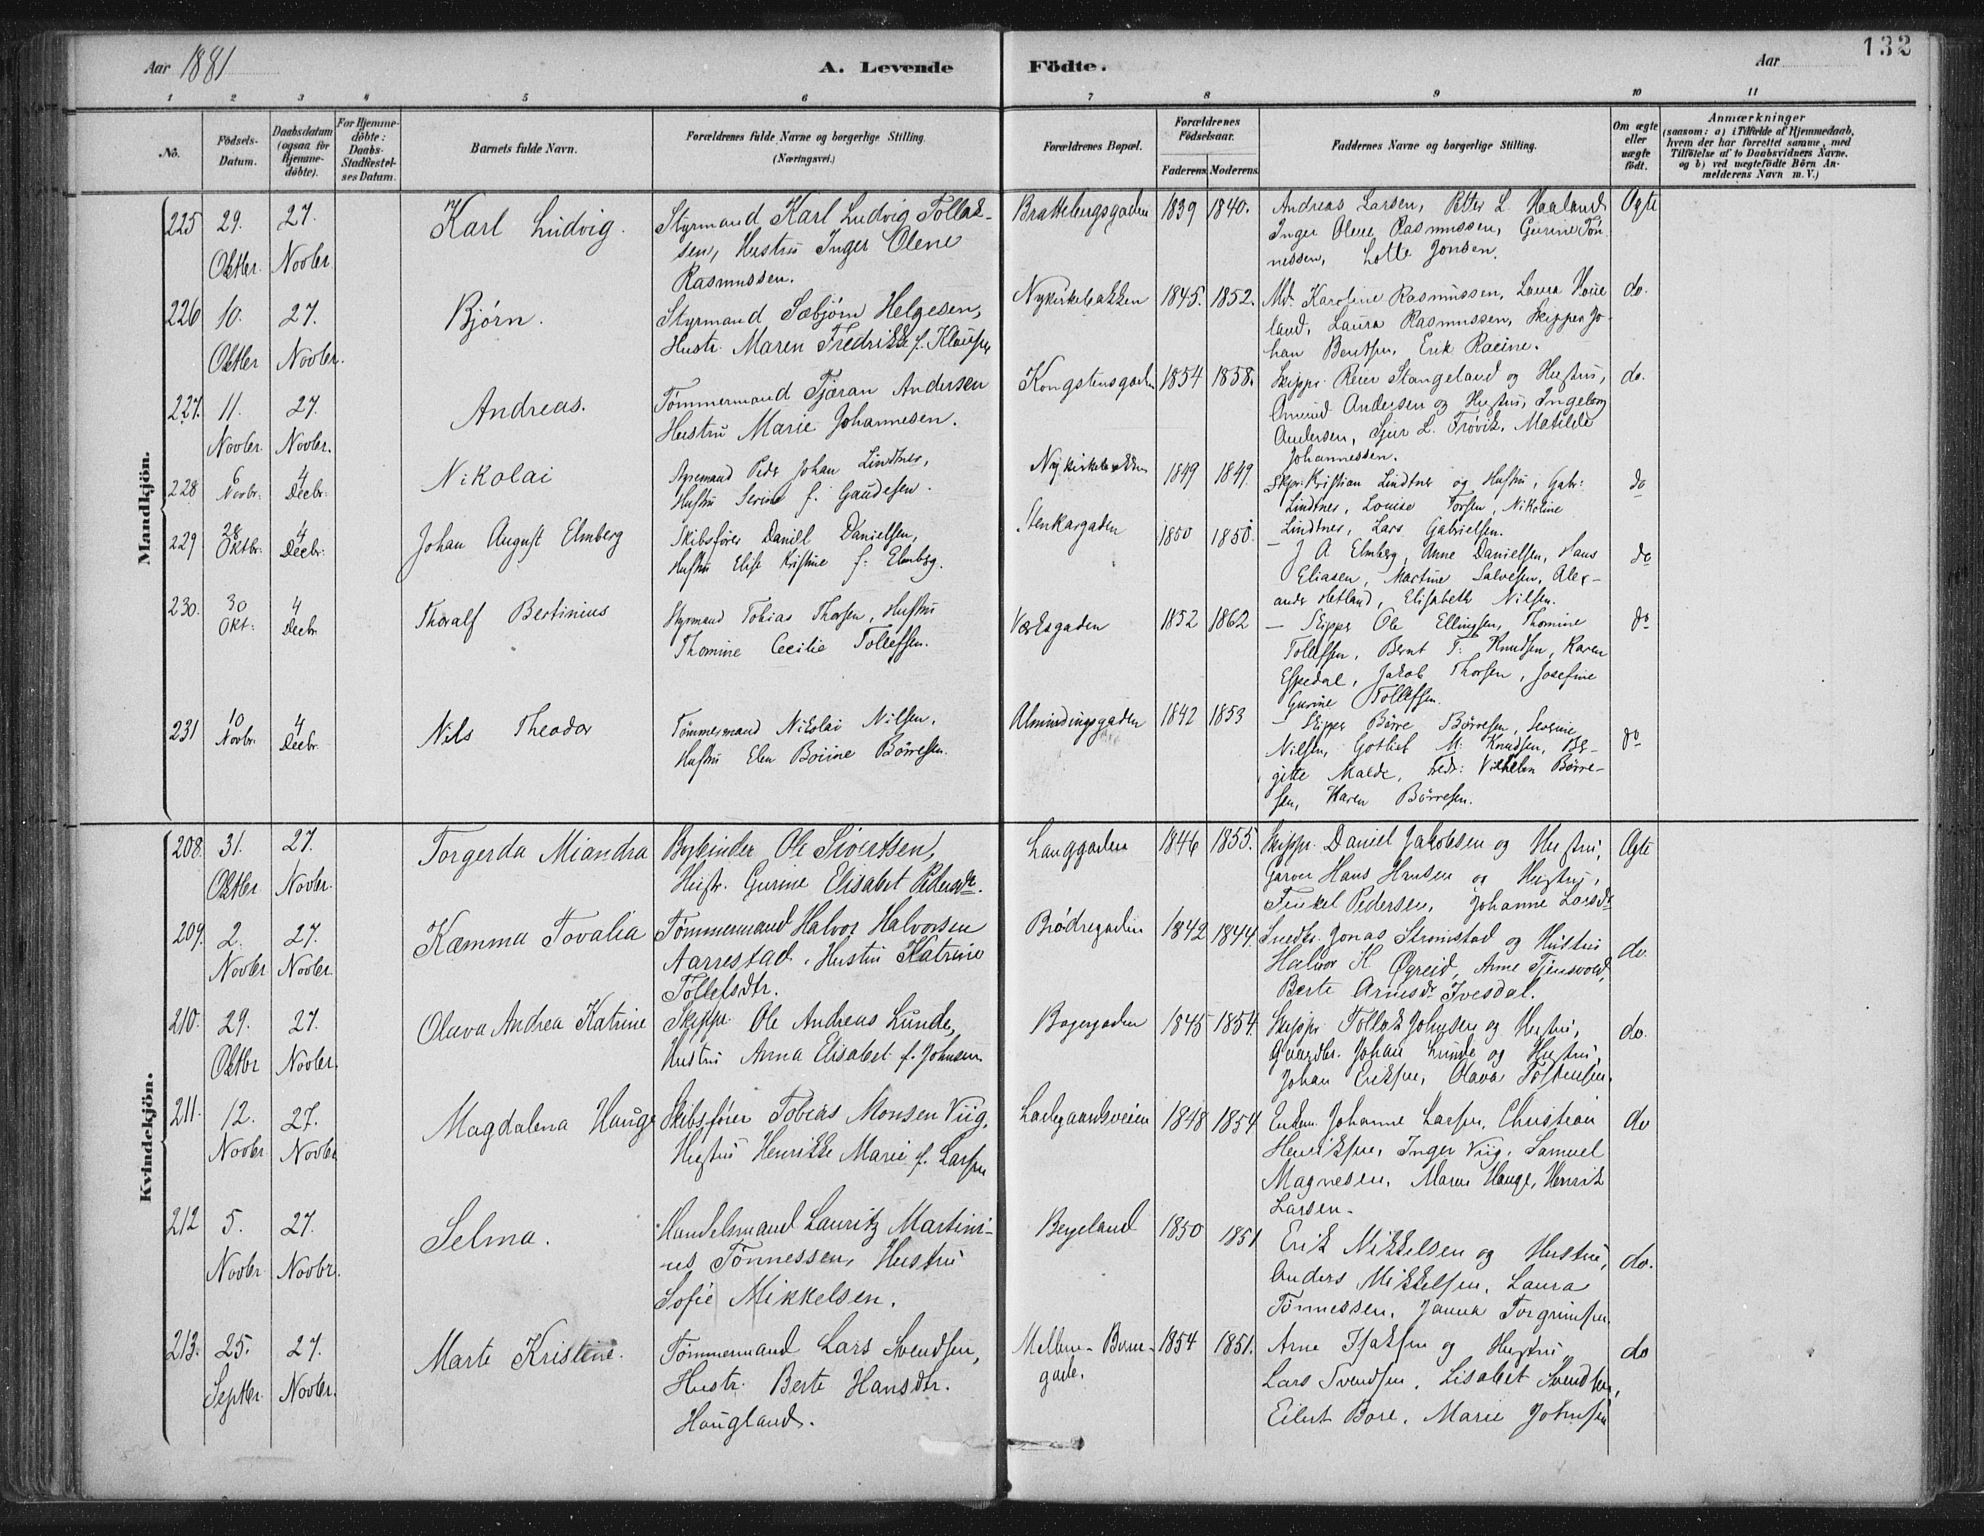 Aar 1881
A. Levende Födte.
Aar
132
1 2 3 4 5 6 7 8 9 10 11
No.
Födsels-Datum.
Daabsdatum (ogsaa for Hjemmedöbte).
For Hjemmedöbte: Daabs-Stadfæstelses Datum.
Barnets fulde Navn.
Forældrenes fulde Navne og borgerlige Stilling. (Næringsvei.)
Forældrenes Bopæl.
Forældrenes Födselsaar.
Faderens. Moderens.
Faddernes Navne og borgerlige Stilling.
Om ægte eller uægte födt.
Anmærkninger
(saasom: a) i Tilfælde af Hjemmedaab, hvem der har forrettet samme, med Tilföielse af to Daabsvidners Navne, og b) ved uægtefödte Börn Anmelderens Navn m. V.)
Mandkjön.
225 29. Oktbr. 27. Novbr. Karl Ludvig. Styrmand Karl Ludvig Tollak-
sen, Hustru Inger Olene
Rasmussen.
Brattebergsgaden 1839 1840. Andreas Larsen, Peter L. Haaland
Inger Olene Rasmussen, Gurine Tön-
nessen, Lotte Jonsen.
Ægte
226 10. Oktbr 27. Novbr. Bjørn. Styrmand Sæbjörn Helgesen,
Hustr. Maren Fredrikke f. Klausen
Nykirkebakken 1845. 1852. Md. Karoline Rasmussen, Laura
land, Laura Rasmussen, Skipper Jo-
han Bentsen, Erik Racine.
do.
227. 11. Novbr 27. Novbr. Andreas. Tømmermand Tjæran Andersen
Hustru Marie Johannesen.
Kongstensgaden 1854 1858. Skippr. Reier Stangeland og Hustru,
Omund Andersen og Hustru, Ingeborg
Andersen, Sjur L. Frövik, Matilde
Johannessen.
do.
228 6 Novbr: 4 Decbr: Nikolai Styrmand Peder Johan Lindtner,
Hustru Serine f. Gaudesen.
Nykirkebakken 1849 1849. Skpr. Kristian Lindtner og Hustru, Gabr:
Lindtner, Louise Torsen, Nikoline
Lindtner, Lars Gabrielsen.
do
229 28 Oktbr: 4 Decbr: Johan August Elmberg Skibsfører Daniel Danielsen,
Hustru Elise Kristine f: Elmberg.
Stenkargaden 1850 1850. J A Elmberg, Anne Danielsen, Hans
Eliasen, Martine Salvesen, Alex-
ander Hetland, Elisabeth Nilsen.
do
230. 30 Okt: 4 Decbr Thoralf Bertinius Styrmand Tobias Thorsen, Hustru
Thomine Cecilie Tollefsen.
Værksgaden 1852 1862 – Skipper Ole Ellingsen, Thomine
Tollefsen, Bernt T: Knudsen, Karen
Espedal, Jakob Thorsen, Josefine
Gurine Tollefsen.
do
231 10 Novbr: 4 Decbr: Nils Theodor Tømmermand Nikolai Nilsen,
Hustru Elen Børine Børresen.
Almindingsgaden 1842 1853 – Skipper Børre Børresen, Severine
Nilsen, Gotlief M: Knudsen, Be-
gitte Malde, Fredr: Vilhelm Børre-
sen, Karen Børresen.
do
Kvindekjön.
208. 31. Oktbr 27. Novbr. Torgerda Miandra Bogbinder Ole Sivertsen,
Hustr. Gurine Elisabet Pedersdr.
Langgaden 1846 1855. Skippr. Daniel Jakobsen og Hustru,
Garver Hans Hansen og Hustru,
Tenkel Pedersen, Johanne Larsdr
Ægte
209. 2. Novbr 27. Novbr. Kæmma Tovalia Tømmermand Halvor Halvorsen
Aarrestad, Hustru Katrine
Tollefsdtr.
Brødregaden 1842 1844. Snedkr. Jonas Strömstad og Hustru
Halvor H. Øgreid, Anne Tjensvold,
Berte Arnesdr Ivesdal.
do.
210. 29. Oktbr 27. Novbr. Olava Andrea Katrine Skippr. Ole Andreas Lunde,
Hustru Anna Elisabet f. Johnsen
Bagergaden 1845 1854. Skippr Tollak Johnsen og Hustru,
Gaardbr. Johan Lunde og Hustru,
Johan Eriksen, Olava Tostensen.
do.
211. 12. Novbr 27. Novbr Magdalena Hauge Skibsfører Tobias Monsen Viig,
Hustru Henrikke Marie f. Larsen
Ladegaardsveien 1848 1854 Enkem. Johanne Larsen, Christian
Henriksen, Inger Viig, Samuel
Magnesen, Maren Hauge, Henrik
Larsen.
do
212 5. Novbr 27. Novbr. Selma. Handelsmand Lauritz Martini-
us Tønnessen, Hustru
Sofie Mikkelsen.
Bergeland 1850 1851 Erik Mikkelsen og Hustru,
Anders Mikkelsen, Laura
Tønnessen, Janna Torgrimsen.
do.
213. 25. Septbr 27. Novbr. Marte Kristine. Tømmermand Lars Svendsen,
Hustr. Berte Hansdtr.
Haugland.
Mellem-Borre-
gade. 1854 1851. Arne Isaksen og Hustru
Lars Svendsen, Lisabet Svendsen,
Eilert Bore, Marie Johnsen
do